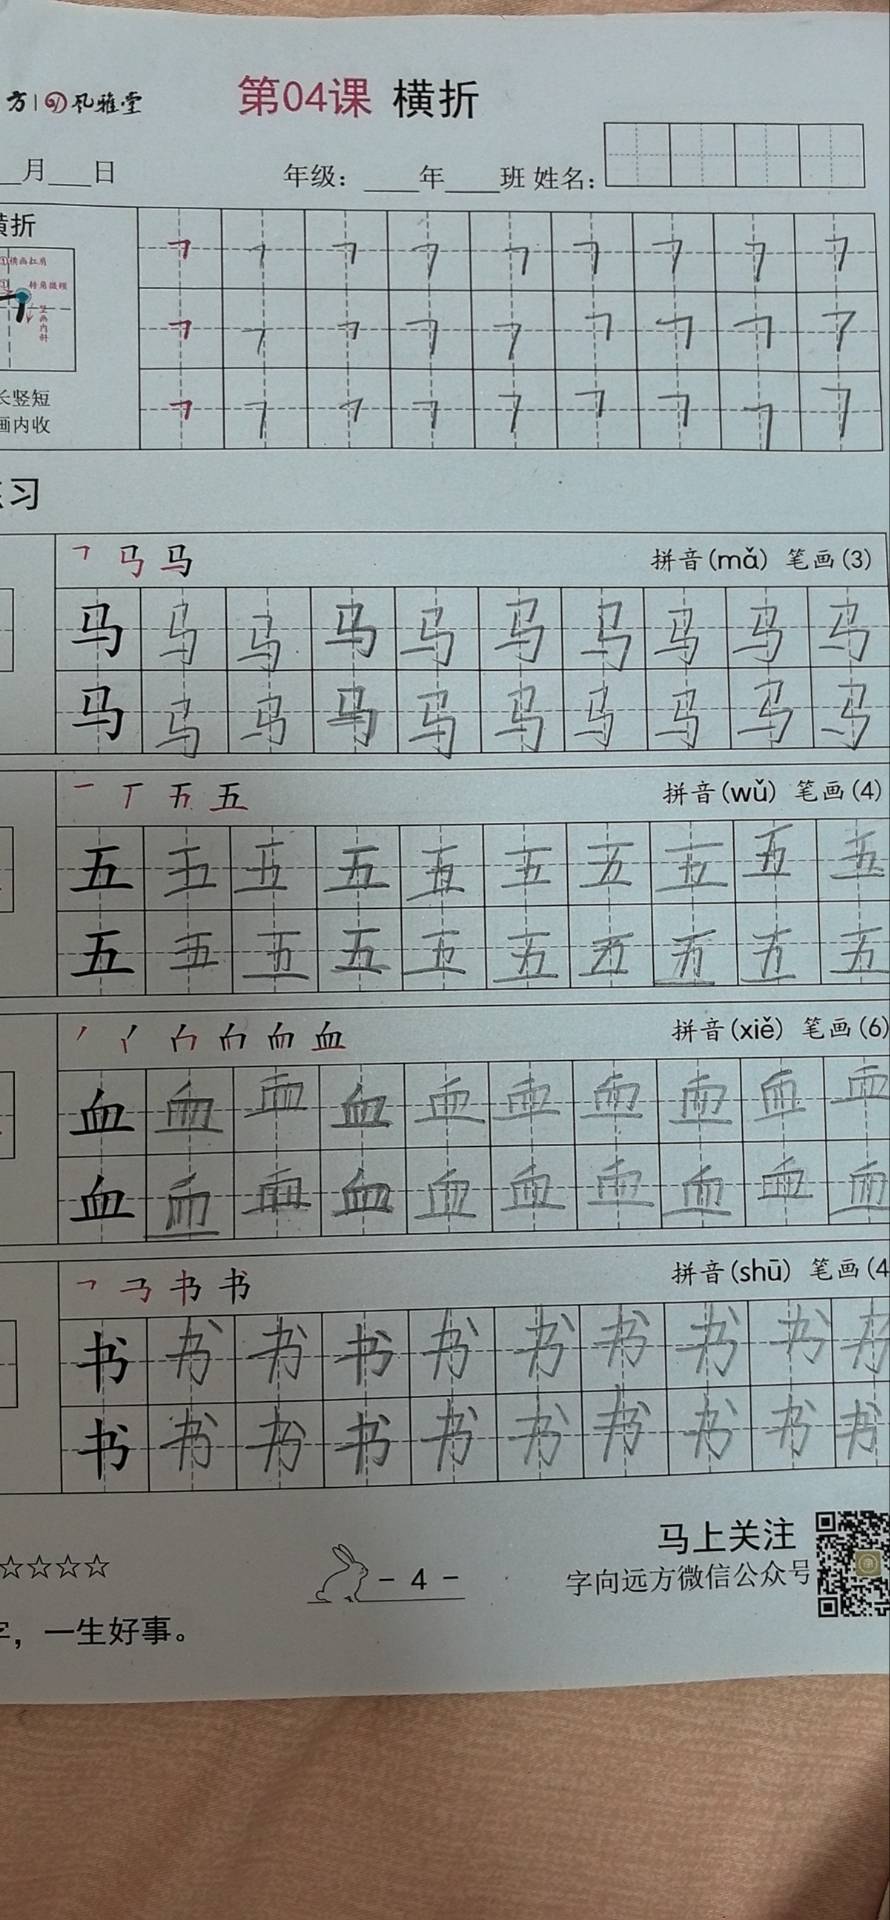 方 风雅堂 第04课 横折
月 日 年级: 年 班 姓名:
横折
①横画扛肩
转角微顿
竖画内斜
长竖短
画内收
㇕ ㇕ ㇕ ㇕ ㇕ ㇕ ㇕ ㇕ ㇕
㇕ ㇕ ㇕ ㇕ ㇕ ㇕ ㇕ ㇕ ㇕
㇕ ㇕ ㇕ ㇕ ㇕ ㇕ ㇕ ㇕ ㇕
习
马 拼音(mǎ) 笔画(3)
马 马 马 马 马 马 马 马 马 马
马 马 马 马 马 马 马 马 马 马
五 拼音(wǔ) 笔画(4)
五 五 五 五 五 五 五 五 五 五
五 五 五 五 五 五 五 五 五 五
血 拼音(xiě) 笔画(6)
血 血 血 血 血 血 血 血 血 血
血 血 血 血 血 血 血 血 血 血
书 拼音(shū) 笔画(4
书 书 书 书 书 书 书 书 书 书
书 书 书 书 书 书 书 书 书 书
☆☆☆☆
- 4 -
马上关注
字向远方微信公众号
字，一生好事。